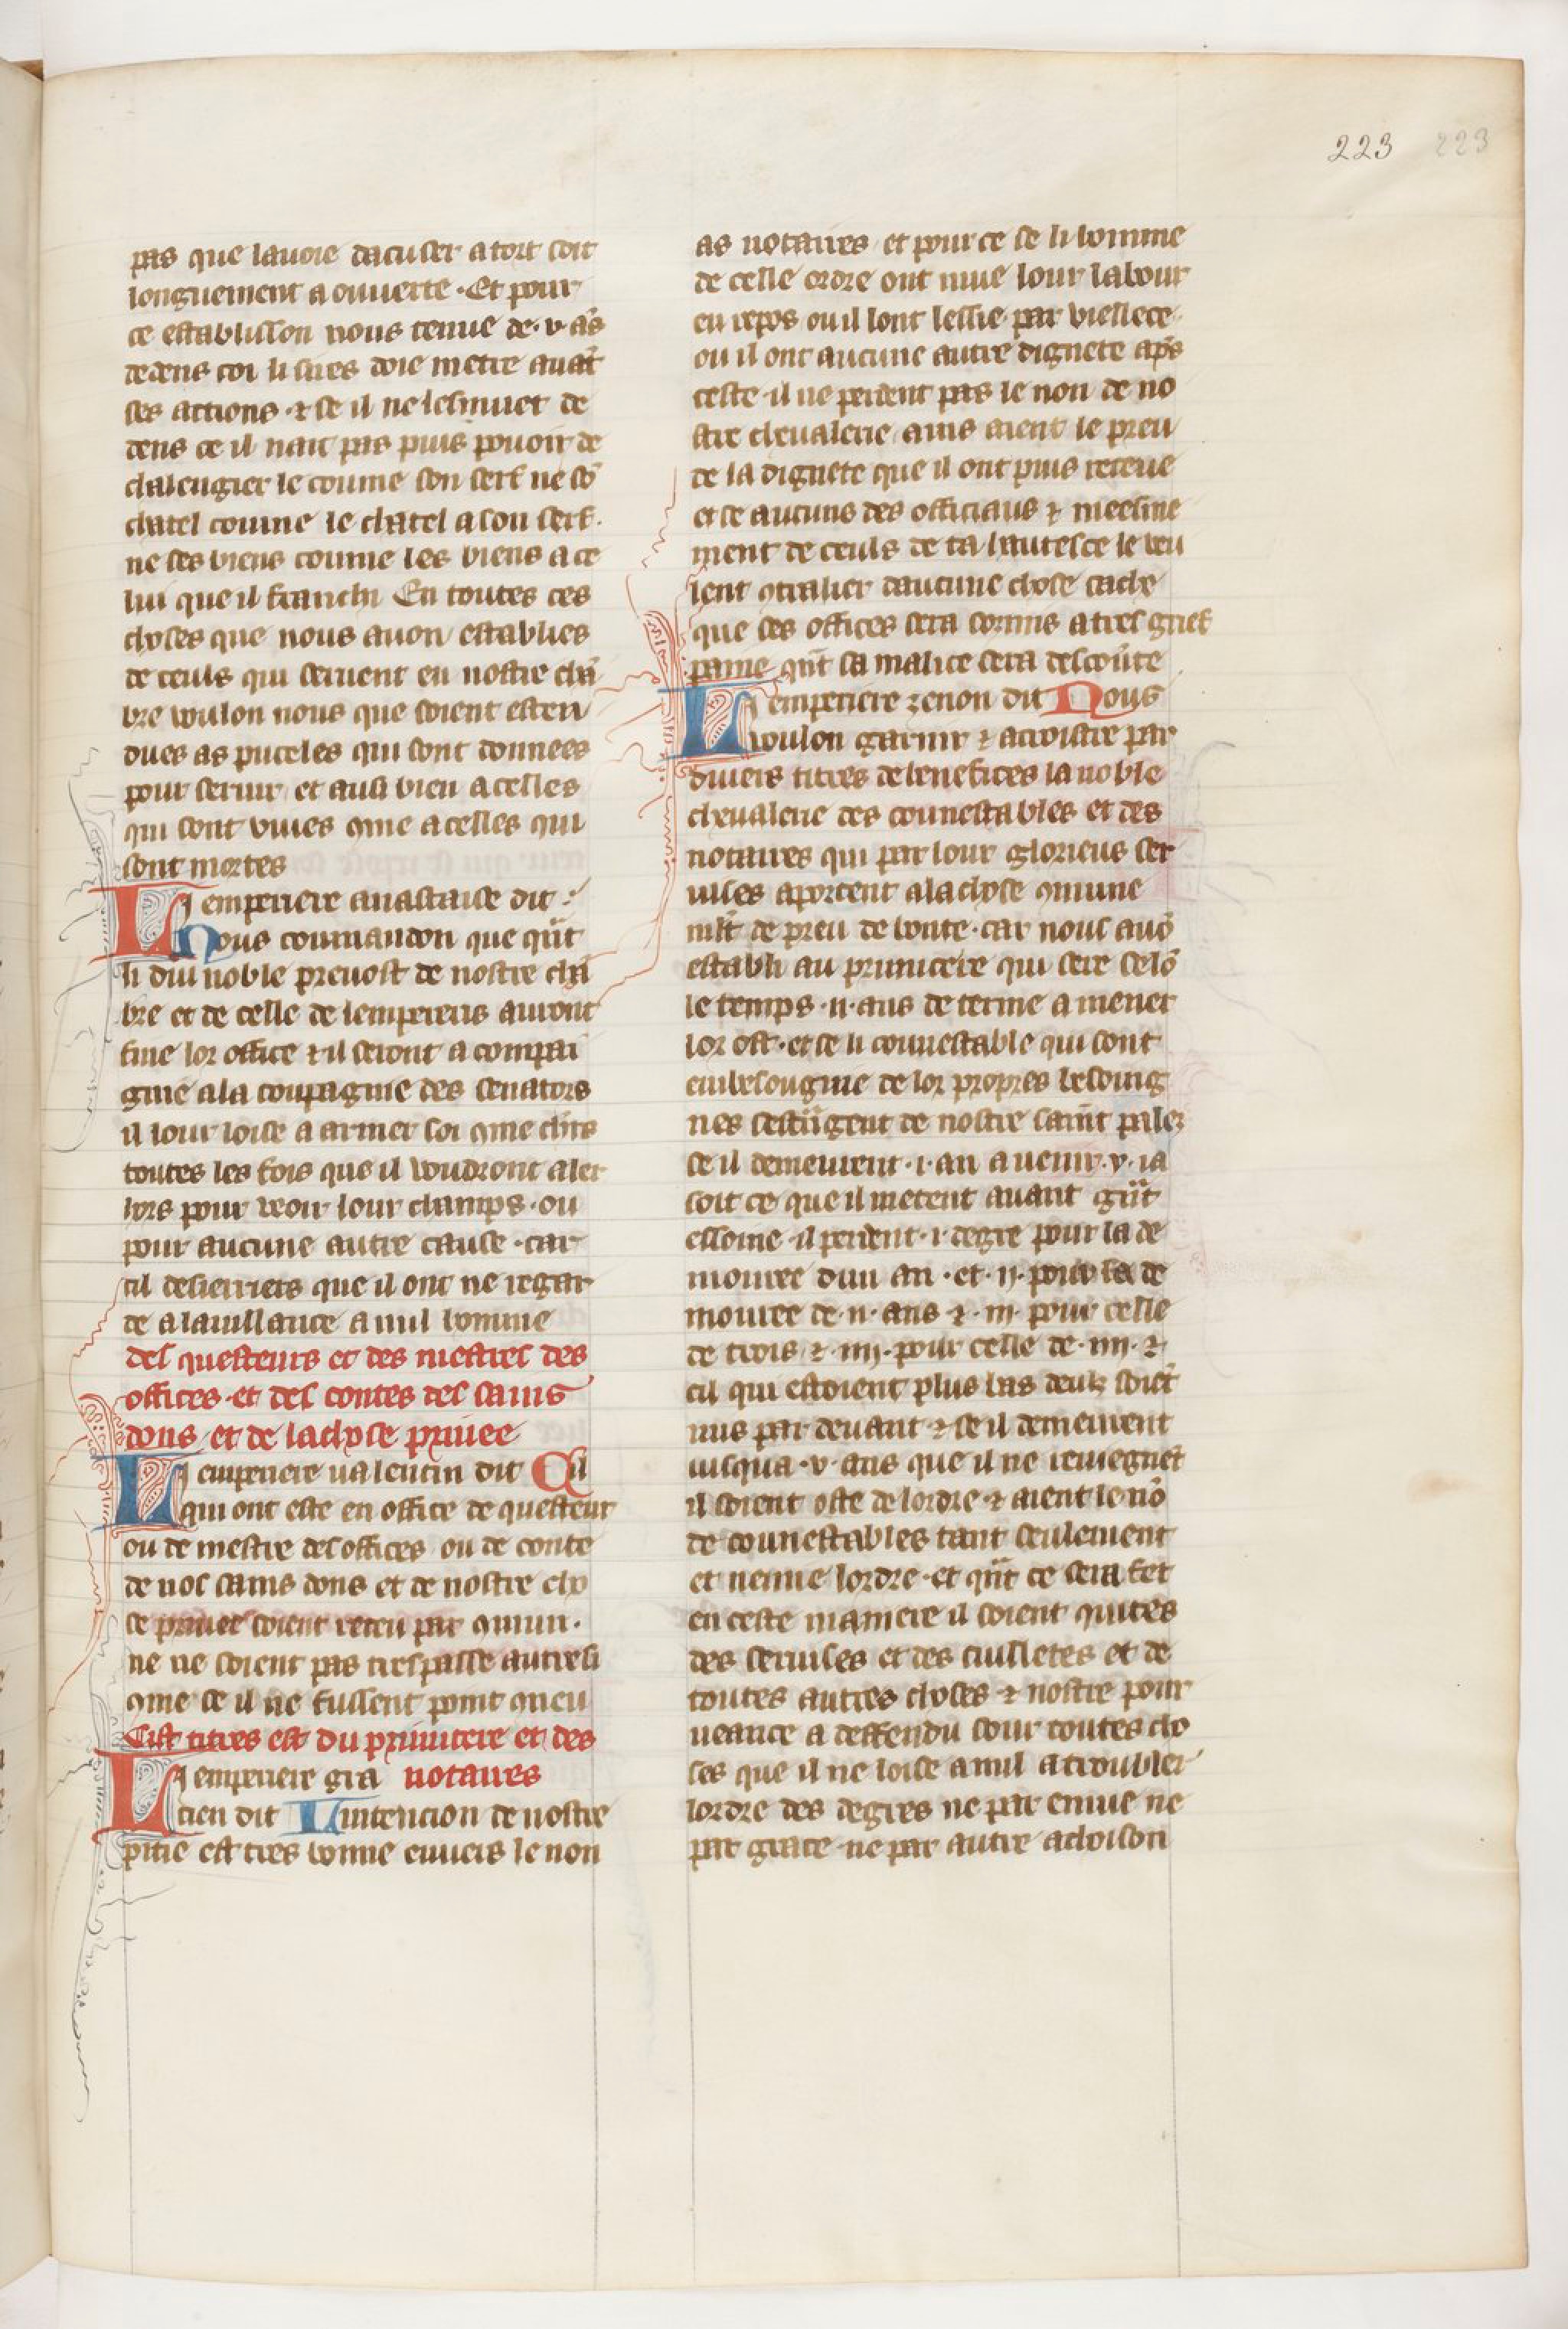 223 223
pas que lauoie dacuser a tort soit
longuement a ouuerte · Et pour
ce establisson nous terme de · v · ās
dedens coi li sires doie metre auāt
ses actions · ⁊ se il ne lesmuet de
dens ce il nait pas puis pouoir de
chalengier le coume son serf ne sō
chatel coume le chatel a son serf ·
ne ses biens coume les biens a ce
lui que il franchi En toutes ces
choses que nous auon establies
de ceuls qui seruent en nostre chā
bre voulon nous que soient esten
dues as puceles qui sont donnees
pour seruir et ausi bien a celles
qui sont viues ꝯme a celles qui
sont mortes
Lemperiere anastaise dit :
Nous coumandon que qn̄t
li dui noble preuost de nostre chā
bre et de celle de lempereris auront
fine lor office ⁊ il seront a compai
gnie a la coupagnie des senators
il lour loise a armer soi ꝯme ch'rs
toutes les fois que il voudront aler
hors pour veoir lour champs · ou
pour aucune autre cause · car
cil desierriers que il ont ne regar
de a lauillance a nul homme
des questeurs et des mestres des
offices · et des contes des sains
dons et de la chose priuee
Lemperiere ualentin dit Cil
qui ont este en office de questeur
ou de mestre des offices ou de conte
de nos sains dons et de nostre cho
se priuee soient receu par ꝯmun ·
ne ne soient pas trespasse autresi
ꝯme se il ne fussent point ꝯneu
Cist titres est du primicere et des
Lemperiere gra notaires
cien dit Lintencion de nostre
pitie est tres bonne enuers le non
as notaires et pour ce se li homme
de celle ordre ont mue lour labour
en repos ou il lont lessie par viellece
ou il ont aucune autre dignete aps
ceste il ne perdent pas le non de no
stre cheualerie ains aient le preu
de la dignete que il ont puis receue
et se aucuns des officiaus ⁊ meesme
ment de ceuls de ta hautesce le veu
lent ꝯtralier daucune chose cache
que ses offices sera sormis a tres grief
paine qn̄t sa malice sera descouerte
Lemperiere zenon dit Nous
voulon garnir ⁊ acroistre par
diuers titres de benefices la noble
cheualerie des counestables et des
notaires qui par lour glorieus ser
uises aportent a la chose ꝯmune
mlt̄ de preu de bonte · car nous auō
establi au primicere qui sere selō
le temps · ii · ans de terme a mener
lor ost · et se li counestable qui sont
enbesougnie de lor propres besoing
nes sestrāgent de nostre saint palez
se il demeurent · i · an a uenir · v · ia
soit ce que il metent auant grāt
essoine il perdent · i · degre pour la de
mouree dun an · et · ii · pour la de
mouree de · ii · ans ⁊ · iii · pour celle
de trois ⁊ · iiij · pour celle de · iiii · ⁊
cil qui estoient plus bas deulz soiēt
mis par deuant ⁊ se il demeurent
iusqua · v · ans que il ne reuiegnēt
il soient oste de lordre ⁊ aient le nō
de counestables tant seulement
et nenne lordre · et qn̄t ce sera fet
en ceste maniere il soient quites
des seruises et des ciuilletes et de
toutes autres choses ⁊ nostre pour
ueance a deffendu sour toutes cho
ses que il ne loise a nul a troubler
lordre des degres ne par enuie ne
par grace ne par autre achoison